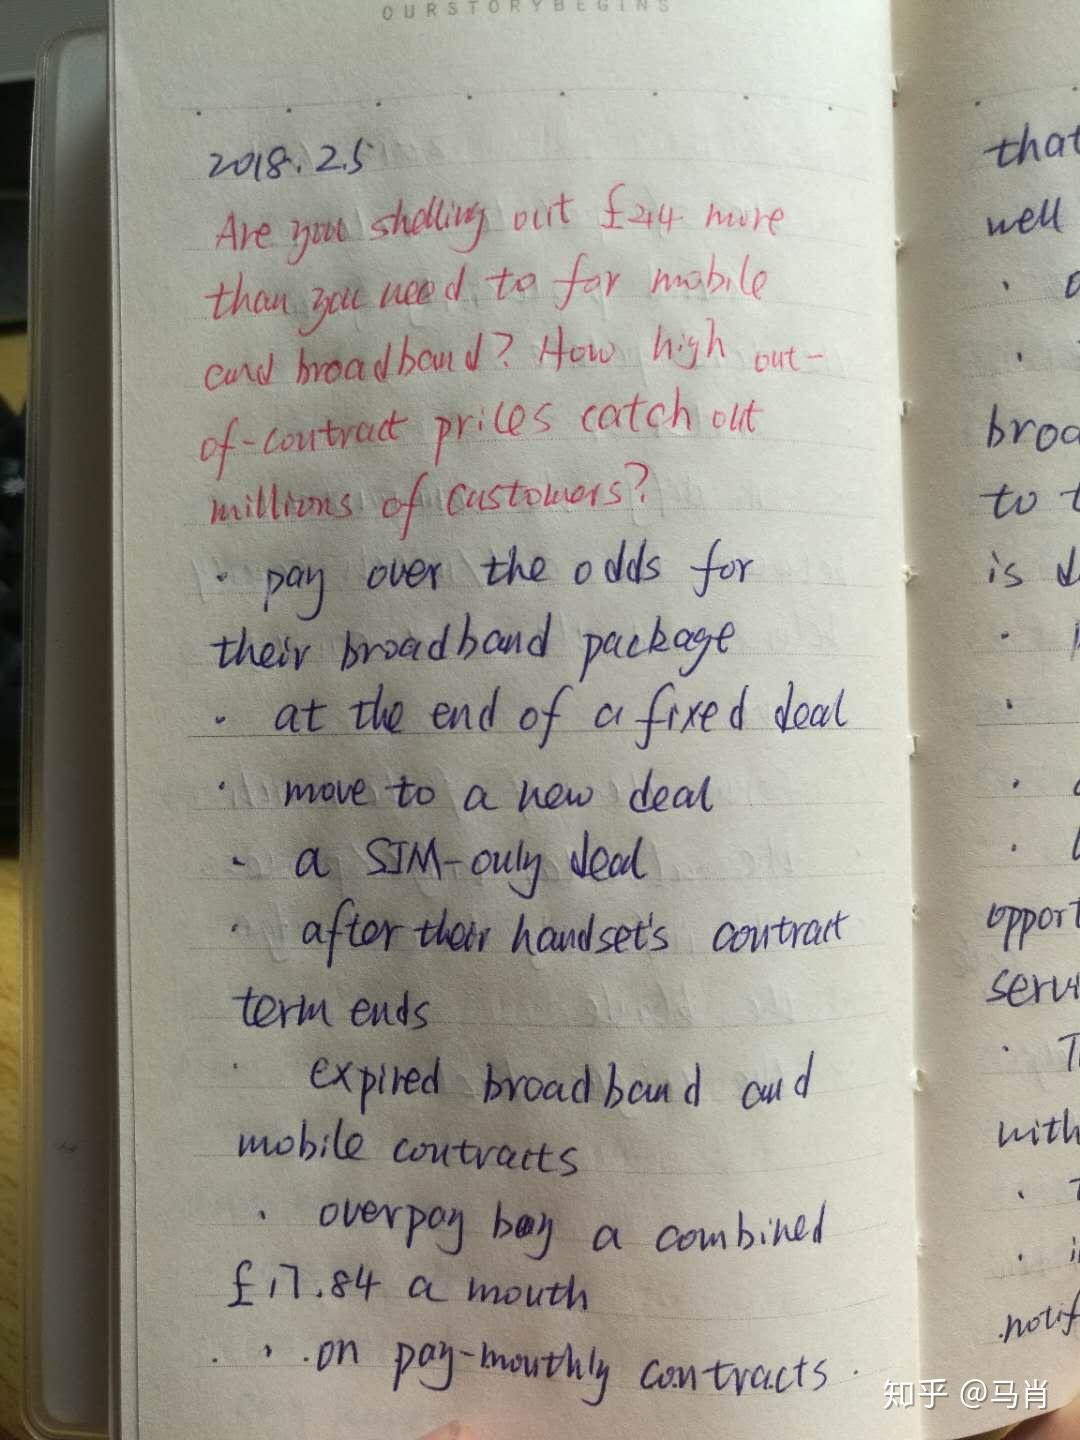 OURSTORYBEGINS
2018.2.5
Are you shelling out £244 more
than you need to for mobile
and broadband? How high out-
of-contract prices catch out
millions of customers?
· pay over the odds for
their broadband package
· at the end of a fixed deal
· move to a new deal
· a SIM-only deal
· after their handset's contract
term ends
· expired broadband and
mobile contracts
· overpay by a combined
£17.84 a month
· on pay-monthly contracts
that
well
broa
to t
is
opport
servi
with
notif
知乎 @马肖